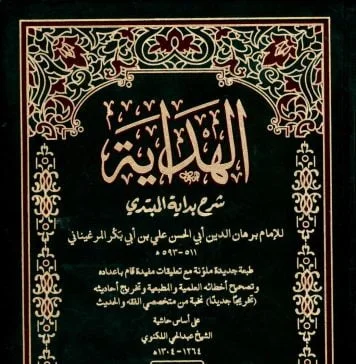 الهداية
شرح بداية المبتدي
للإمام برهان الدين أبي الحسن علي بن أبي بكر المرغيناني
٥١١ - ٥٩٣هـ
طبعة جديدة ملونة مع تعليقات مفيدة قام بإعداده
وتصحيح أخطائه العلمية والمطبعية وتخريج أحاديثه
(تخريجًا جديدًا) نخبة من متخصصي الفقه والحديث
على أساس حاشية
الشيخ عبدالحي اللكنوي
١٢٦٤ - ١٣٠٤هـ